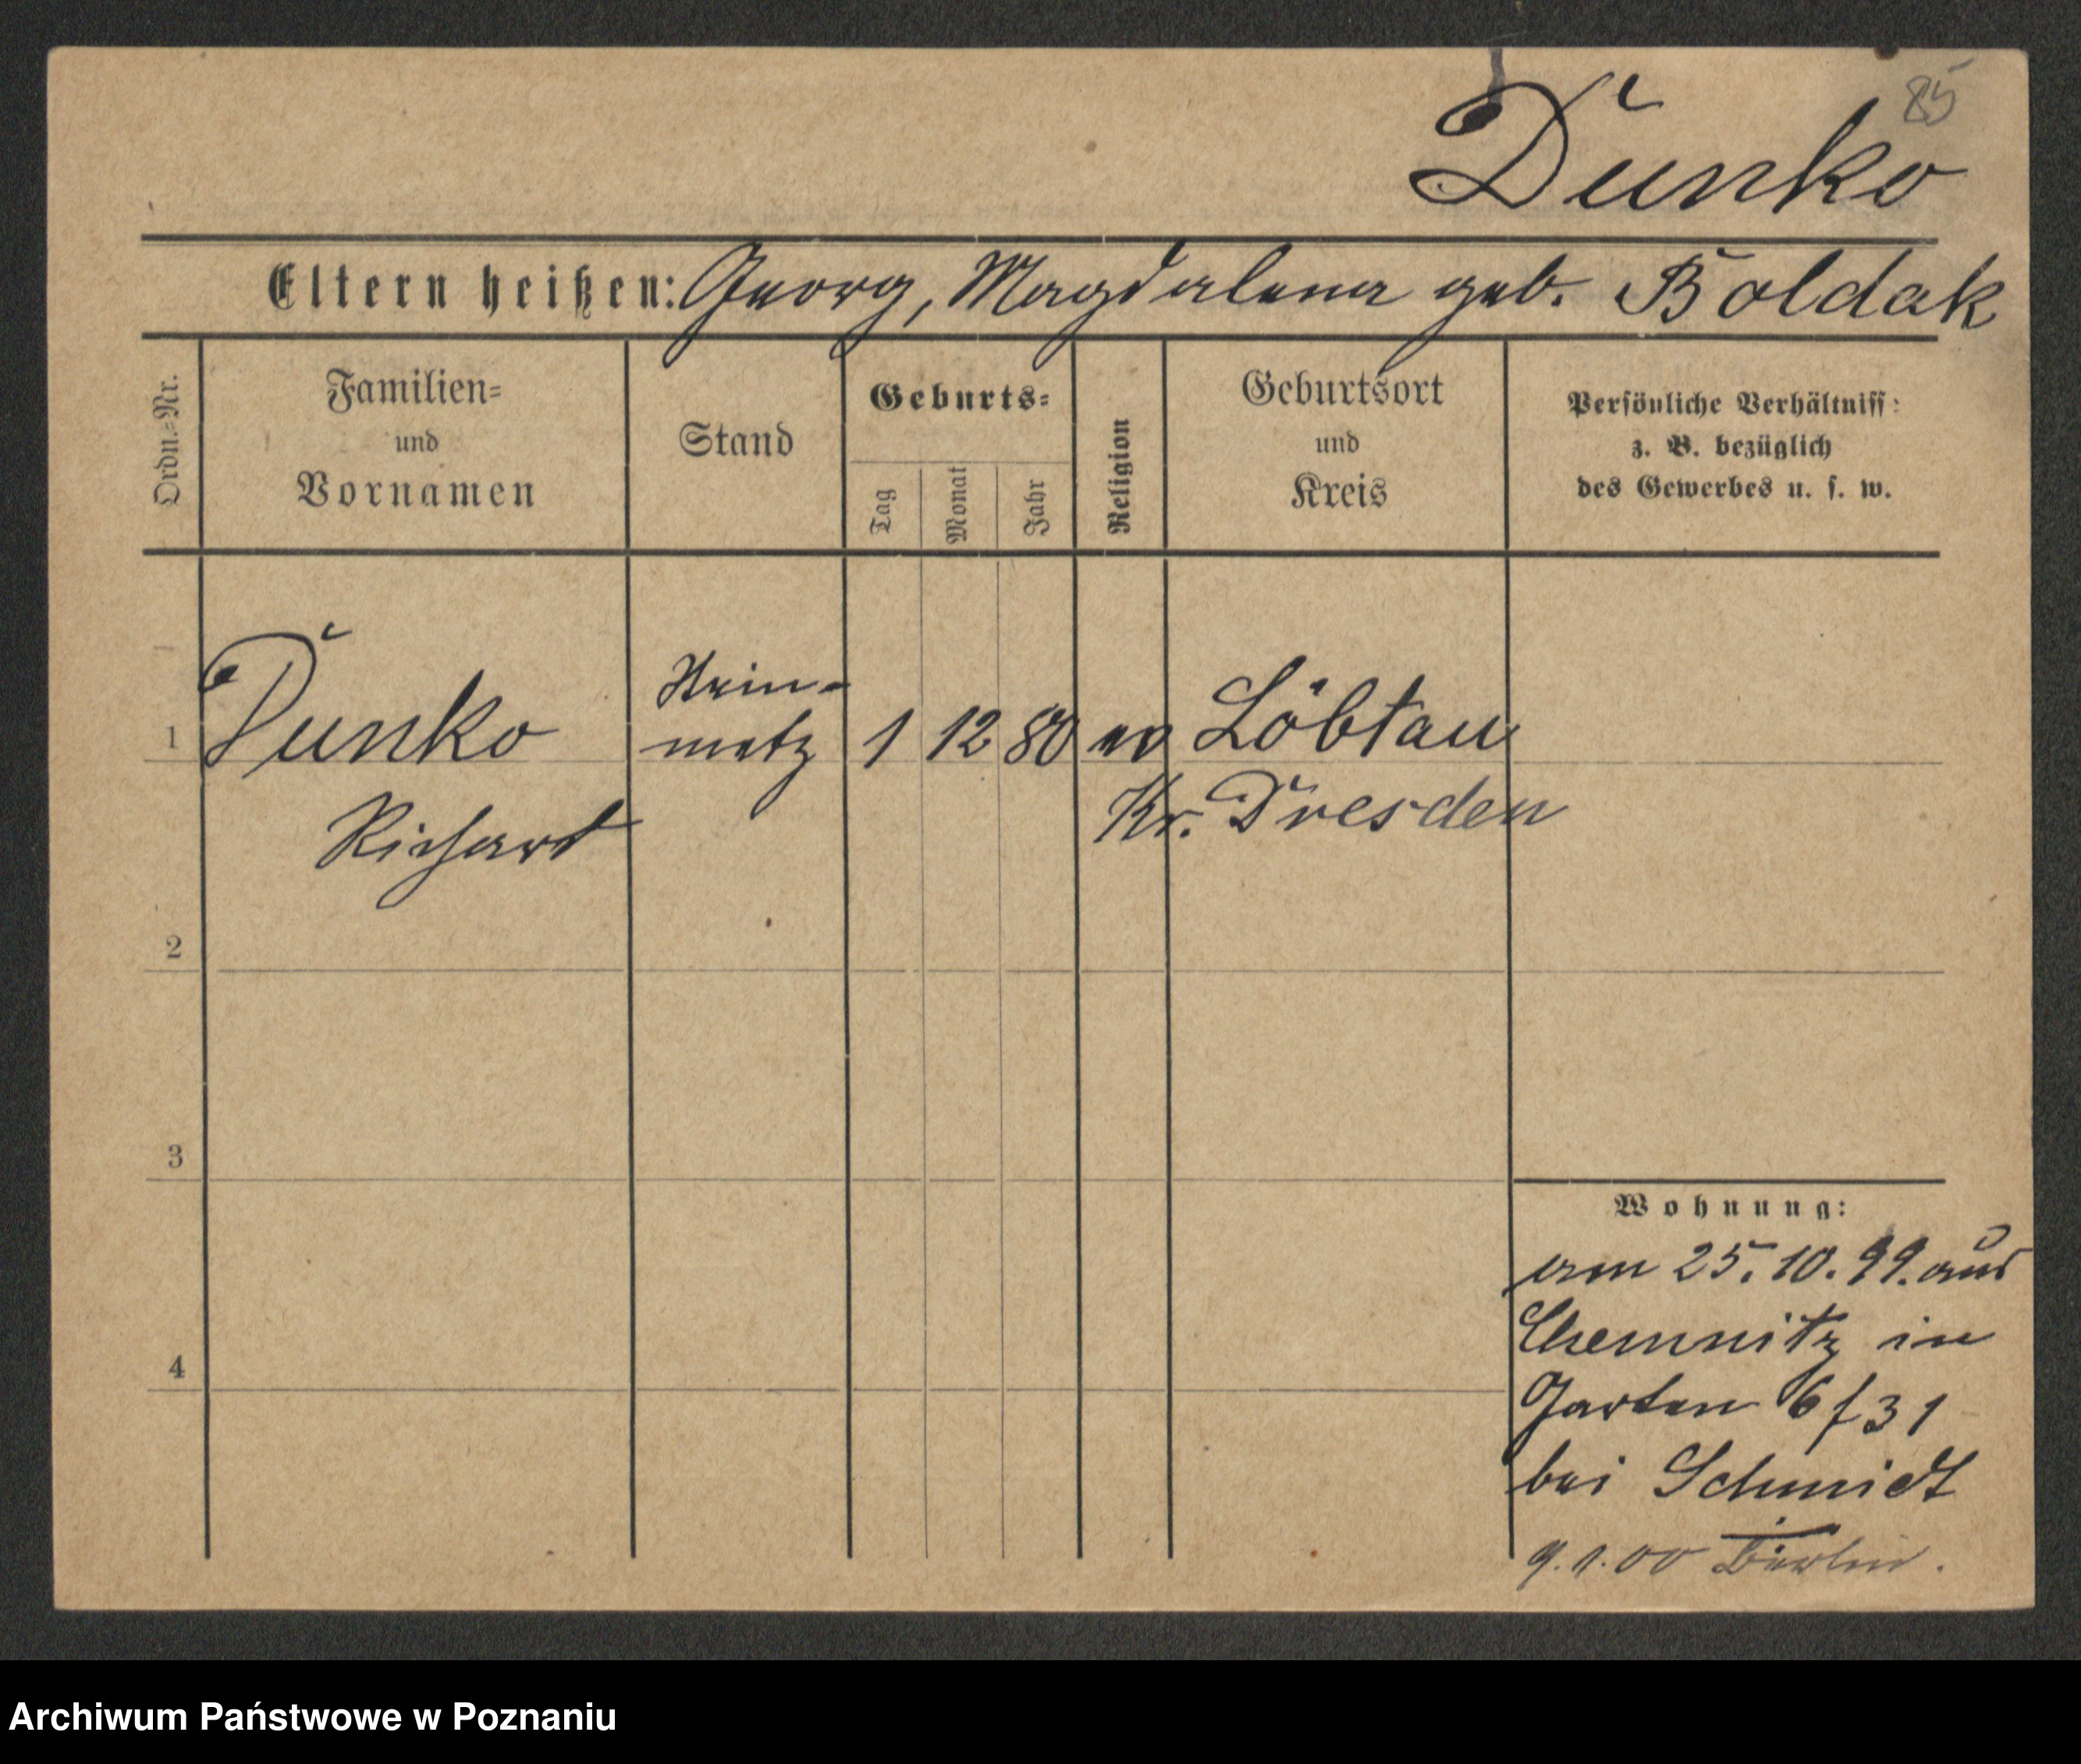 85
Dunko
Eltern heißen: Georg, Magdalena geb. Boldak
Ordn.-Nr.
Familien-
und
Vornamen
Stand
Geburts-
Tag
Monat
Jahr
Religion
Geburtsort
und
Kreis
Persönliche Verhältniss:
z. B. bezüglich
des Gewerbes u. s. w.
1 Dunko Stein-
metz 1 12 80 ev Löbtau
Richard Kr. Dresden
2
3
4
Wohnung:
am 25. 10. 99. aus
Chemnitz in
Garten 6/31
bei Schmidt
9.1.00 Berlin.
Archiwum Państwowe w Poznaniu